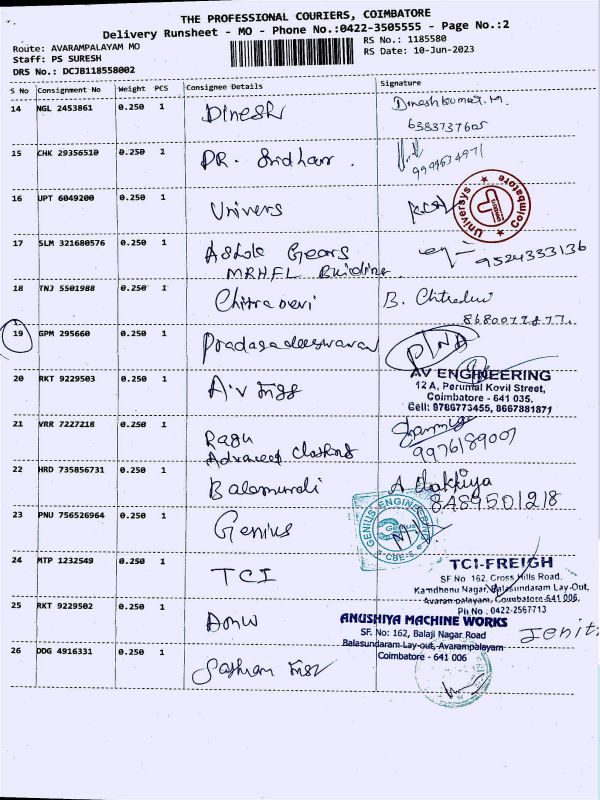 THE PROFESSIONAL COURIERS, COIMBATORE
Delivery Runsheet - MO - Phone No.:0422-3505555 - Page No.:2
Route: AVARAMPALAYAM MO
Staff: PS SURESH
DRS No.: DCJB118558002
RS No.: 1185580
RS Date: 10-Jun-2023
S No Consignment No Weight PCS Consignee Details Signature
14 NGL 2453861 0.250 1 Dinesh Dineshkumar.M.
6383737605
15 CHK 29356510 0.250 1 DR. Sridharr.
9999634971
16 UPT 6049200 0.250 1 Univers
Universys ★ Coimbatore ★
17 SLM 321680576 0.250 1 Ashok Gears 9524333136
MRHFL Building
18 TNJ 5501988 0.250 1 Chitra Devi B. Chitradevi
8680077877.
19 GPM 295660 0.250 1 Pradagadeeswaran
20 RKT 9229503 0.250 1 A.V Engg
AV ENGINEERING
12 A, Perumal Kovil Street,
Coimbatore - 641 035.
Cell: 9786773455, 8667881871
21 VRR 7227218 0.250 1 Ragu
Advanced Clothing 9976189007
22 HRD 735856731 0.250 1 Balamurali A Elakkiya
8489501218
23 PNU 756526964 0.250 1 Genius
GENIUS ENGINEERING
Genius
CBE-6
24 MTP 1232549 0.250 1 TCI
TCI-FREIGH
SF No 162, Cross Hills Road,
Kamdhenu Nagar, Balasundaram Lay-Out,
Avarampalayam, Coimbatore-641 006.
Ph.No : 0422-2567713
25 RKT 9229502 0.250 1 Amw
ANUSHIYA MACHINE WORKS
SF. No: 162, Balaji Nagar Road
Balasundaram Lay-out, Avarampalayam
Coimbatore - 641 006
26 DDG 4916331 0.250 1 Sathiam Engg